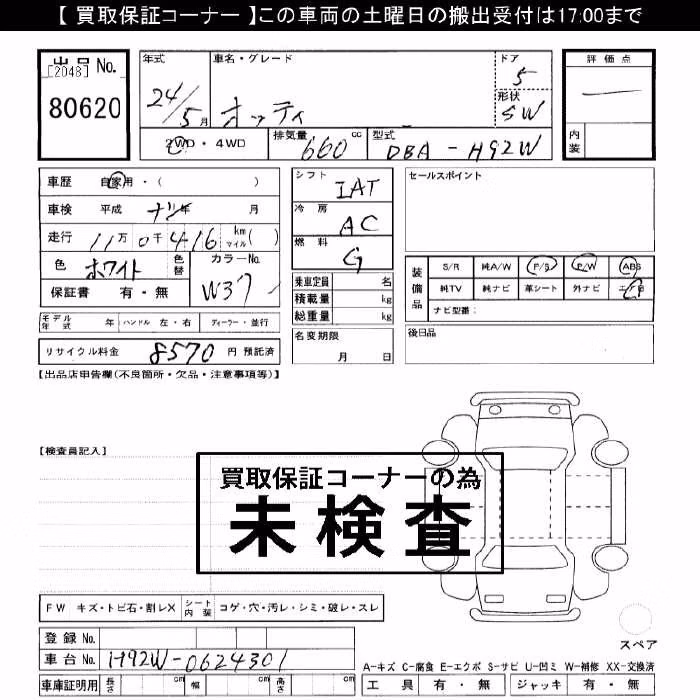 【 買取保証コーナー 】この車両の土曜日の搬出受付は17:00まで
出品 No.
[2048]
80620
年式
24/5月
車名・グレード
オッティ
ドア
5
形状
SW
2WD・4WD
排気量
660 cc
型式
DBA - H92W
評価点
内装
車歴 自家用・( )
車検 平成 ナシ年 月
走行 11万 0千 416 km マイル( )
色 ホワイト 色替
カラーNo.
W37
保証書 有・無
モデル年式 年 ハンドル 左・右 ディーラー・並行
リサイクル料金 8570 円 預託済
シフト
IAT
冷房
AC
燃料
G
乗車定員 名
積載量 kg
総重量 kg
名変期限
月 日
セールスポイント
装備品
S/R 純A/W P/S P/W ABS
純TV 純ナビ 革シート 外ナビ エアB
ナビ型番:
後日品
【出品店申告欄(不良箇所・欠品・注意事項等)】
【検査員記入】
買取保証コーナーの為
未検査
FW キズ・トビ石・割レX シート内装 コゲ・穴・汚レ・シミ・破レ・スレ
登録 No.
車台 No. H92W-0624301
車庫証明用 長さ cm 幅 cm 高さ cm
スペア
A-キズ C-腐食 E-エクボ S-サビ U-凹ミ W-補修 XX-交換済
工具 有・無 ジャッキ 有・無